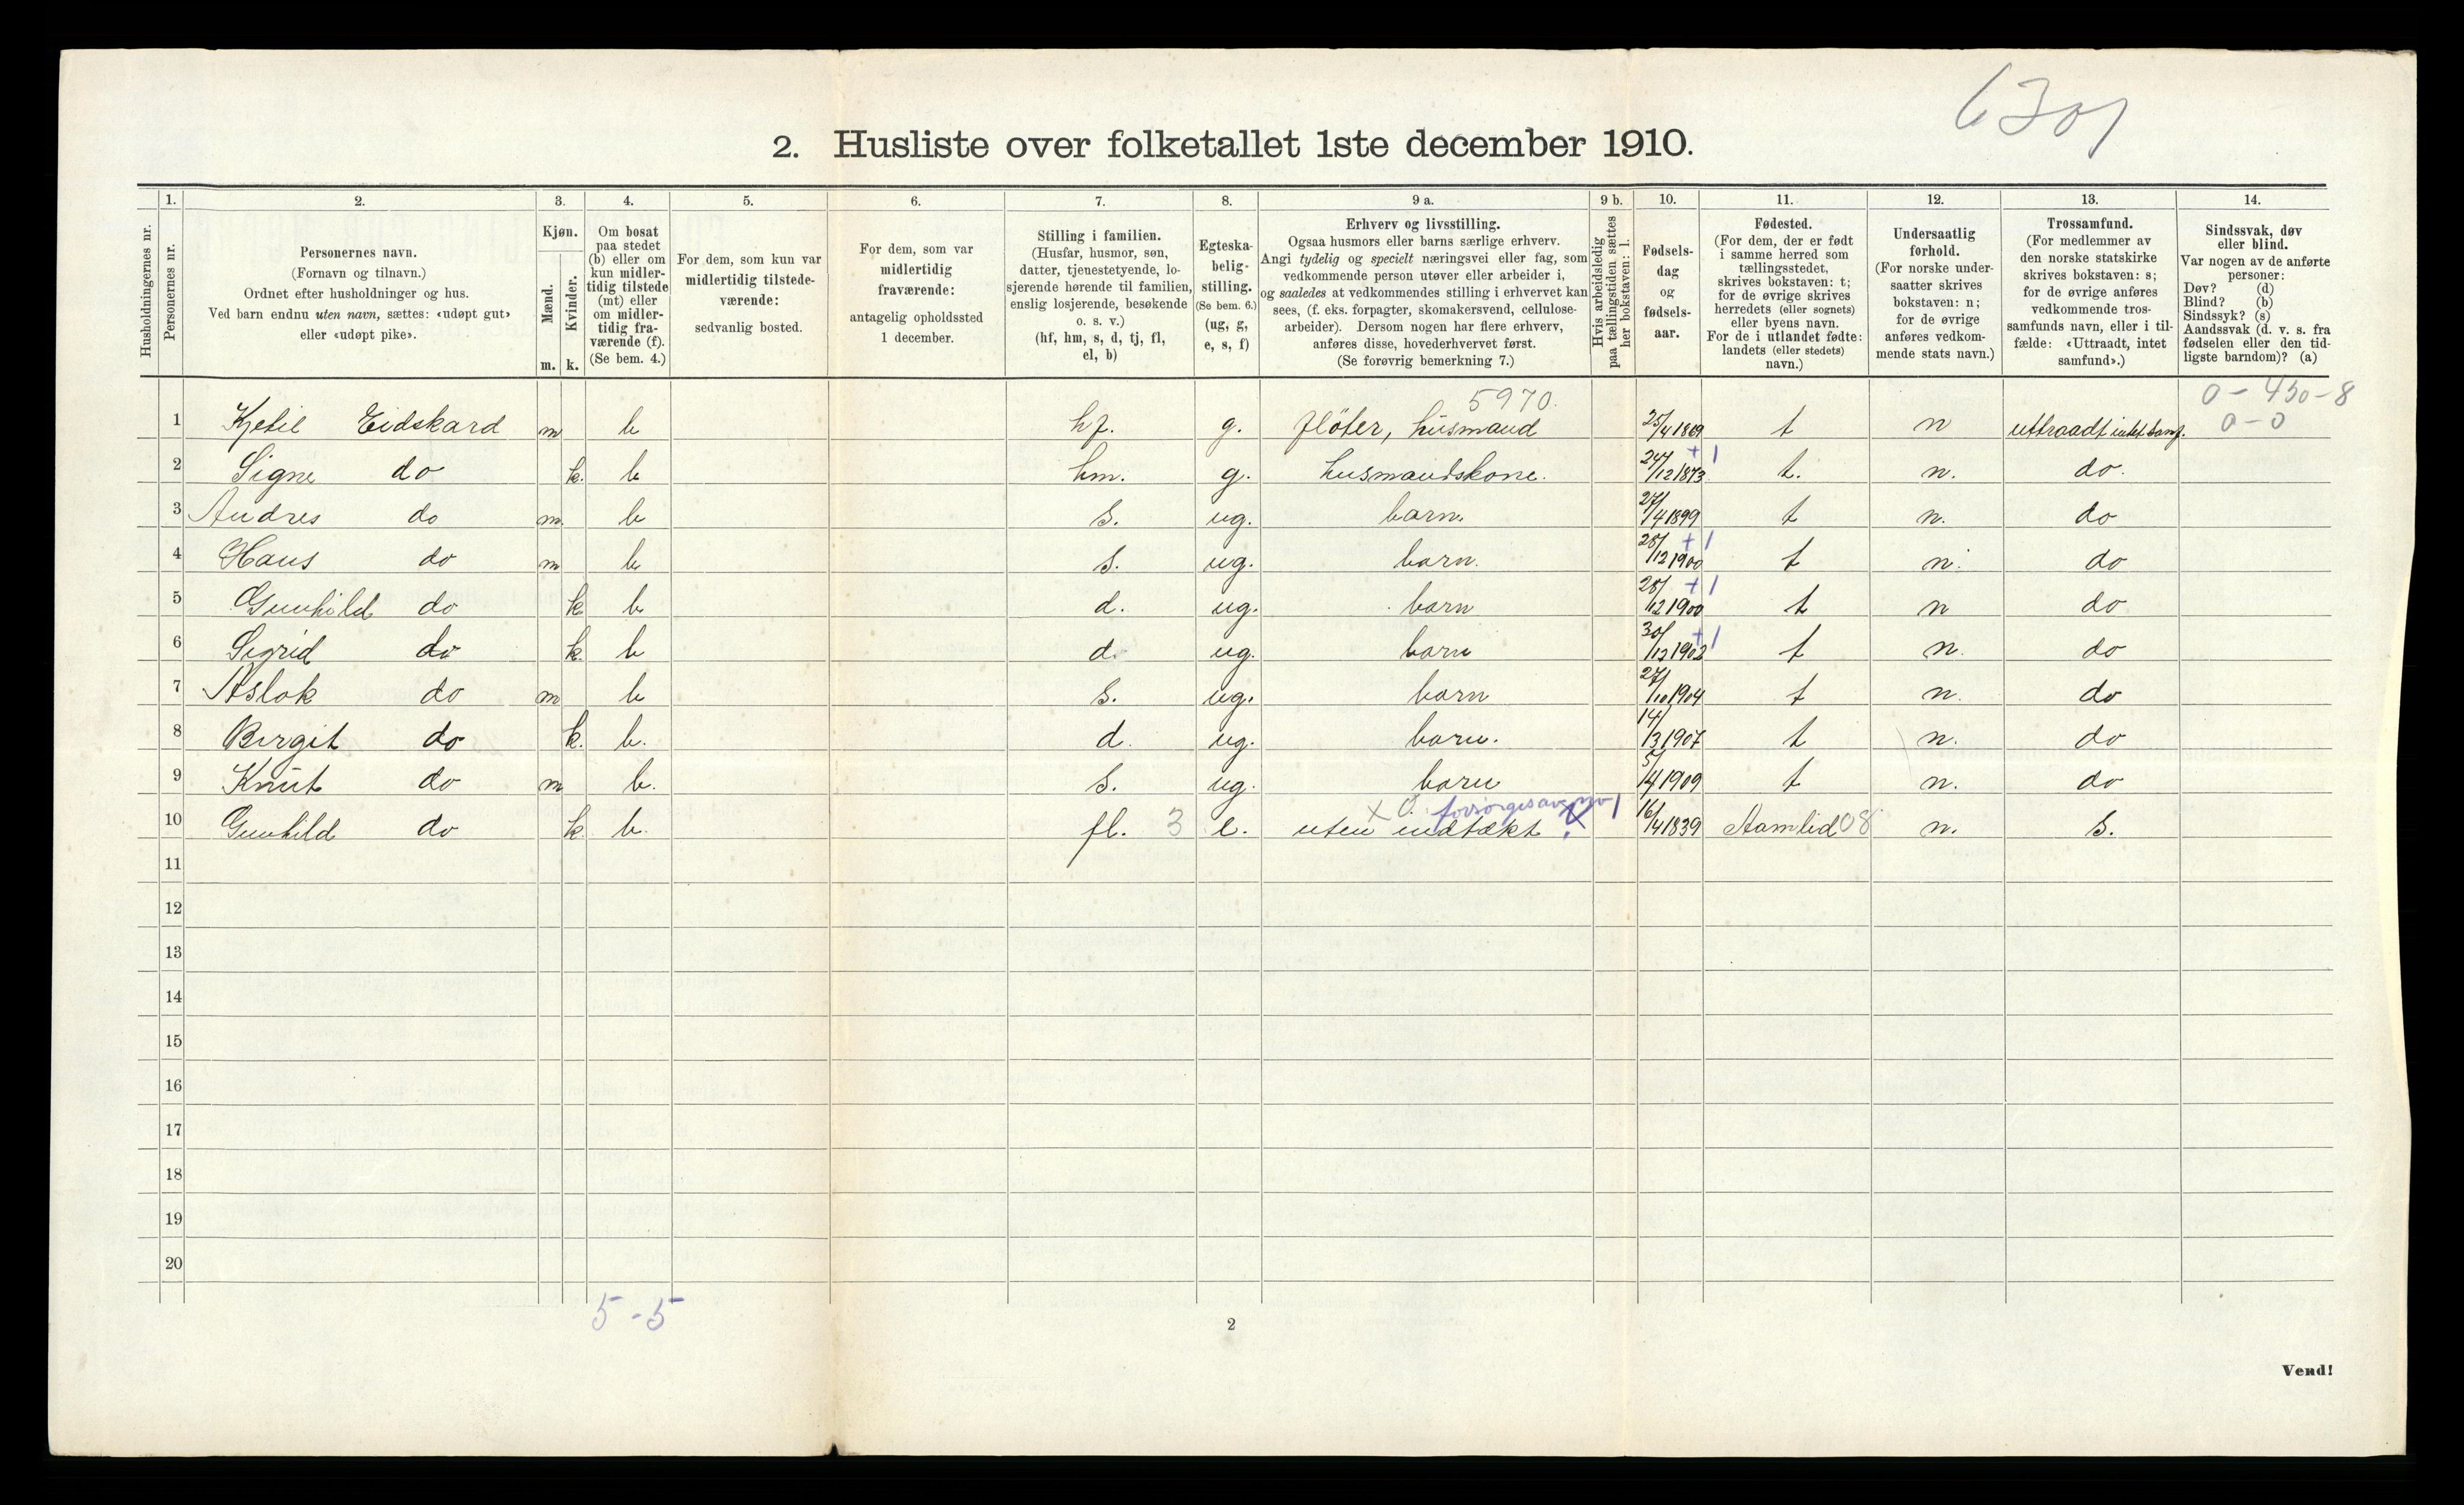 6301
2. Husliste over folketallet 1ste december 1910.
Husholdningernes nr.
1. Personernes nr.
2. Personernes navn. (Fornavn og tilnavn.) Ordnet efter husholdninger og hus. Ved barn endnu uten navn, sættes: «udøpt gut» eller «udøpt pike».
3. Kjøn. Mænd. m. Kvinder. k.
4. Om bosat paa stedet (b) eller om kun midlertidig tilstede (mt) eller om midlertidig fraværende (f). (Se bem. 4.)
5. For dem, som kun var midlertidig tilstedeværende: sedvanlig bosted.
6. For dem, som var midlertidig fraværende: antagelig opholdssted 1 december.
7. Stilling i familien. (Husfar, husmor, søn, datter, tjenestetyende, losjerende hørende til familien, enslig losjerende, besøkende o. s. v.) (hf, hm, s, d, tj, fl, el, b)
8. Egteskabelig stilling. (Se bem. 6.) (ug, g, e, s, f)
9 a. Erhverv og livsstilling. Ogsaa husmors eller barns særlige erhverv. Angi tydelig og specielt næringsvei eller fag, som vedkommende person utøver eller arbeider i, og saaledes at vedkommendes stilling i erhvervet kan sees, (f. eks. forpagter, skomakersvend, cellulosearbeider). Dersom nogen har flere erhverv, anføres disse, hovederhvervet først. (Se forøvrig bemerkning 7.)
9 b. Hvis arbeidsledig paa tællingstiden sættes her bokstaven: l.
10. Fødselsdag og fødselsaar.
11. Fødested. (For dem, der er født i samme herred som tællingsstedet, skrives bokstaven: t; for de øvrige skrives herredets (eller sognets) eller byens navn. For de i utlandet fødte: landets (eller stedets) navn.)
12. Undersaatlig forhold. (For norske undersaatter skrives bokstaven: n; for de øvrige anføres vedkommende stats navn.)
13. Trossamfund. (For medlemmer av den norske statskirke skrives bokstaven: s; for de øvrige anføres vedkommende trossamfunds navn, eller i tilfælde: «Uttraadt, intet samfund».)
14. Sindssvak, døv eller blind. Var nogen av de anførte personer: Døv? (d) Blind? (b) Sindssyk? (s) Aandssvak (d. v. s. fra fødselen eller den tidligste barndom)? (a)
5970. 0-450-8
1 Kjetil Eidskard m b hf. g. fløter, husmand 25/4 1869 t n uttraadt intet samf. 0-0
2 Signe do k. b hm. g. husmandskone. 24/12 1873 +1 t. n. do.
3 Andres do m. b s. ug. barn. 27/4 1899 t n. do
4 Hans do m b s. ug. barn. 28/12 1900 +1 t n. do
5 Gunhild do k b d. ug. barn 28/12 1900 +1 t n do
6 Sigrid do k. b d. ug. barn 30/12 1902 +1 t n. do
7 Aslak do m b s. ug. barn 27/10 1904 t n. do
8 Birgit do k. b. d. ug. barn. 14/3 1907 t n. do
9 Knut do m b. s. ug. barn 5/4 1909 t n. do
x O. forsørges av
10 Gunhild do k b. fl. 3 e. uten indtækt 16/4 1839 08 n. s.
11
12
13
14
15
16
17
18
19
20
5-5
2
Vend!